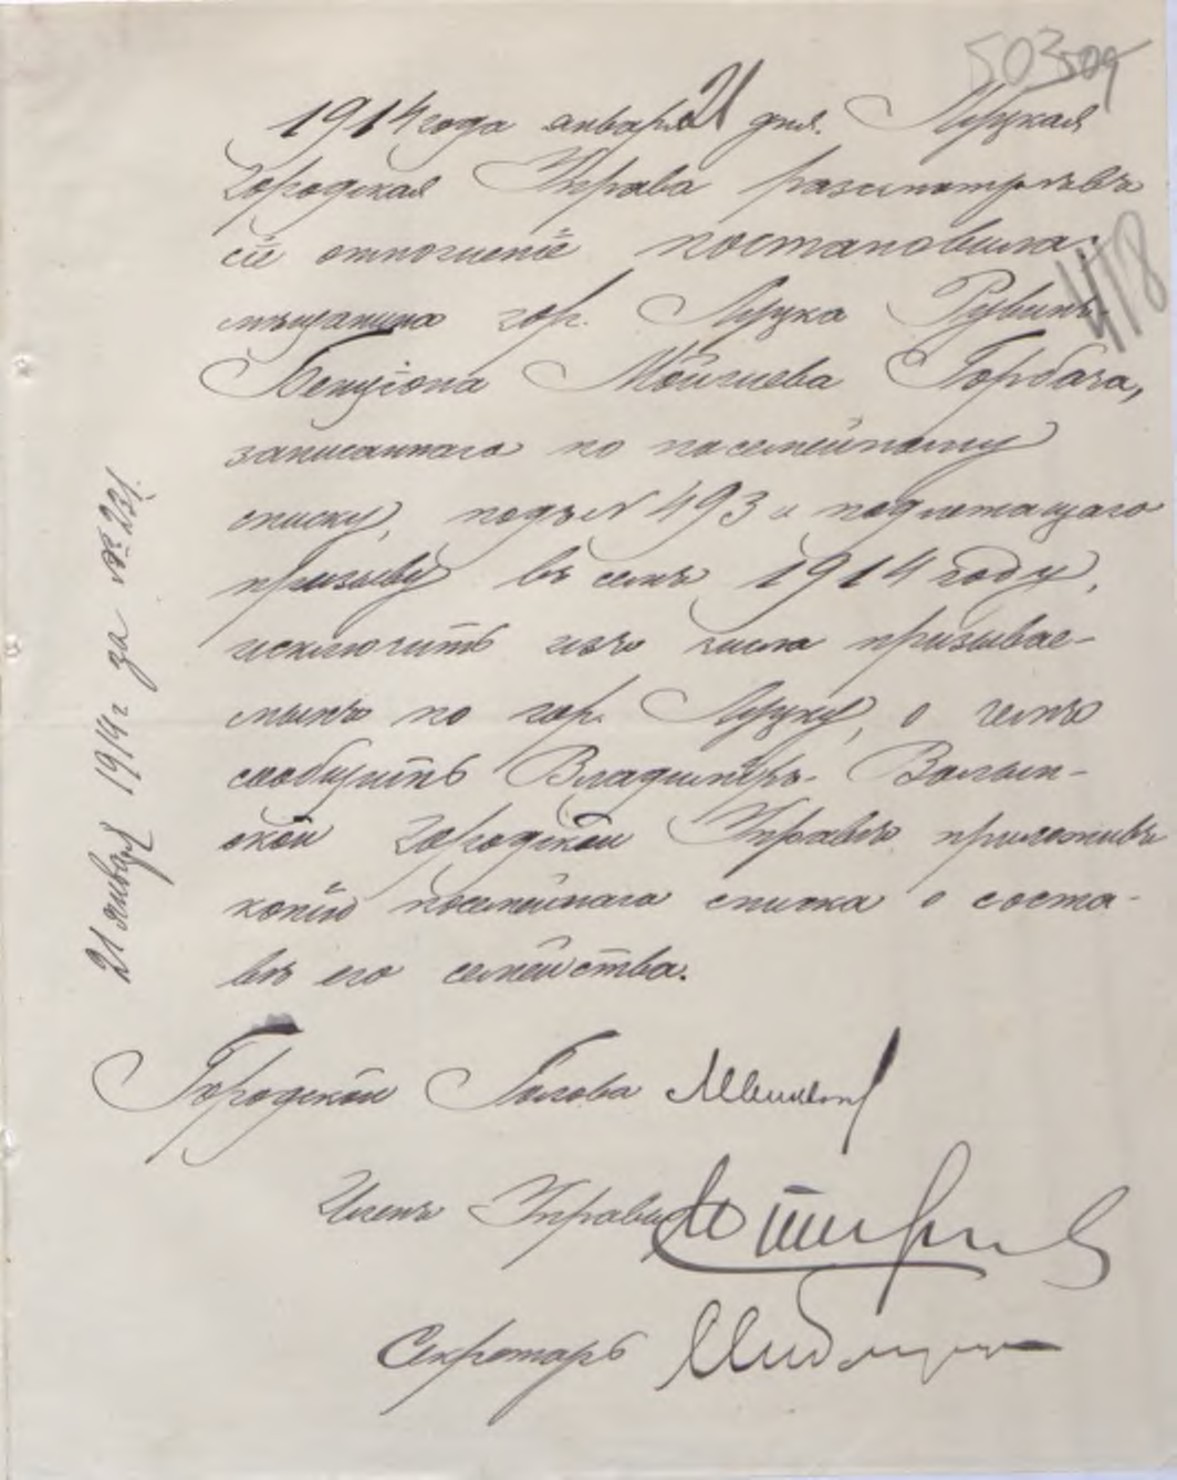 503 509
1914 года января 21 дня. Луцкая
Городская Управа разсмотрѣвъ
сіе отношеніе постановила:
418
мѣщанина гор. Луцка Рувинъ-
Бенціона Мойшева Горбача,
записаннаго по посемейному
списку, подъ N 493 и подлежащаго
призыву въ семъ 1914 году,
исключить изъ числа призывае-
мыхъ по гор. Луцку, о чемъ
сообщить Владиміръ-Волын-
ской Городской Управѣ приложивъ
копію посемейнаго списка о соста-
вѣ его семейства.
Городской Голова
Членъ Управы
Секретарь
21 января 1914 г за № 231.